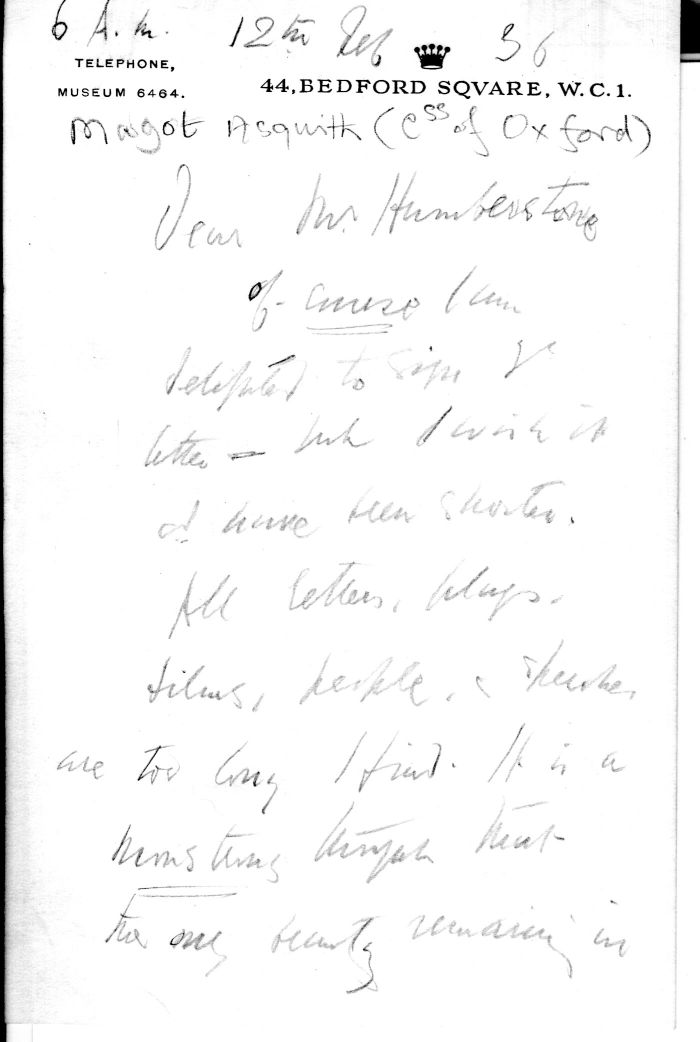 6 A.m. 12th Feb 36
TELEPHONE,
MUSEUM 6464.
44, BEDFORD SQVARE, W.C.1.
Margot Asquith (Css of Oxford)
Dear Mr. Humberstone
of course I am
delighted to sign yr
letter – but I wish it
cd. have been shorter.
All letters, plays,
films, people, & speeches
are too long I find. It is a
monstrous that
the only beauty remaining in